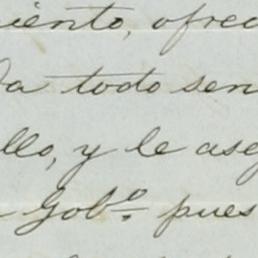 iento, ofrec
da todo sen
llo, y le aseg
Gob.º pues